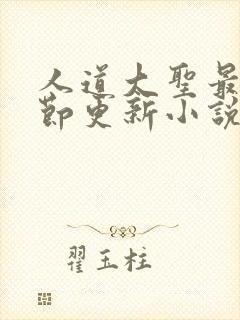 人道太聖最
節更新小說
翟玉柱